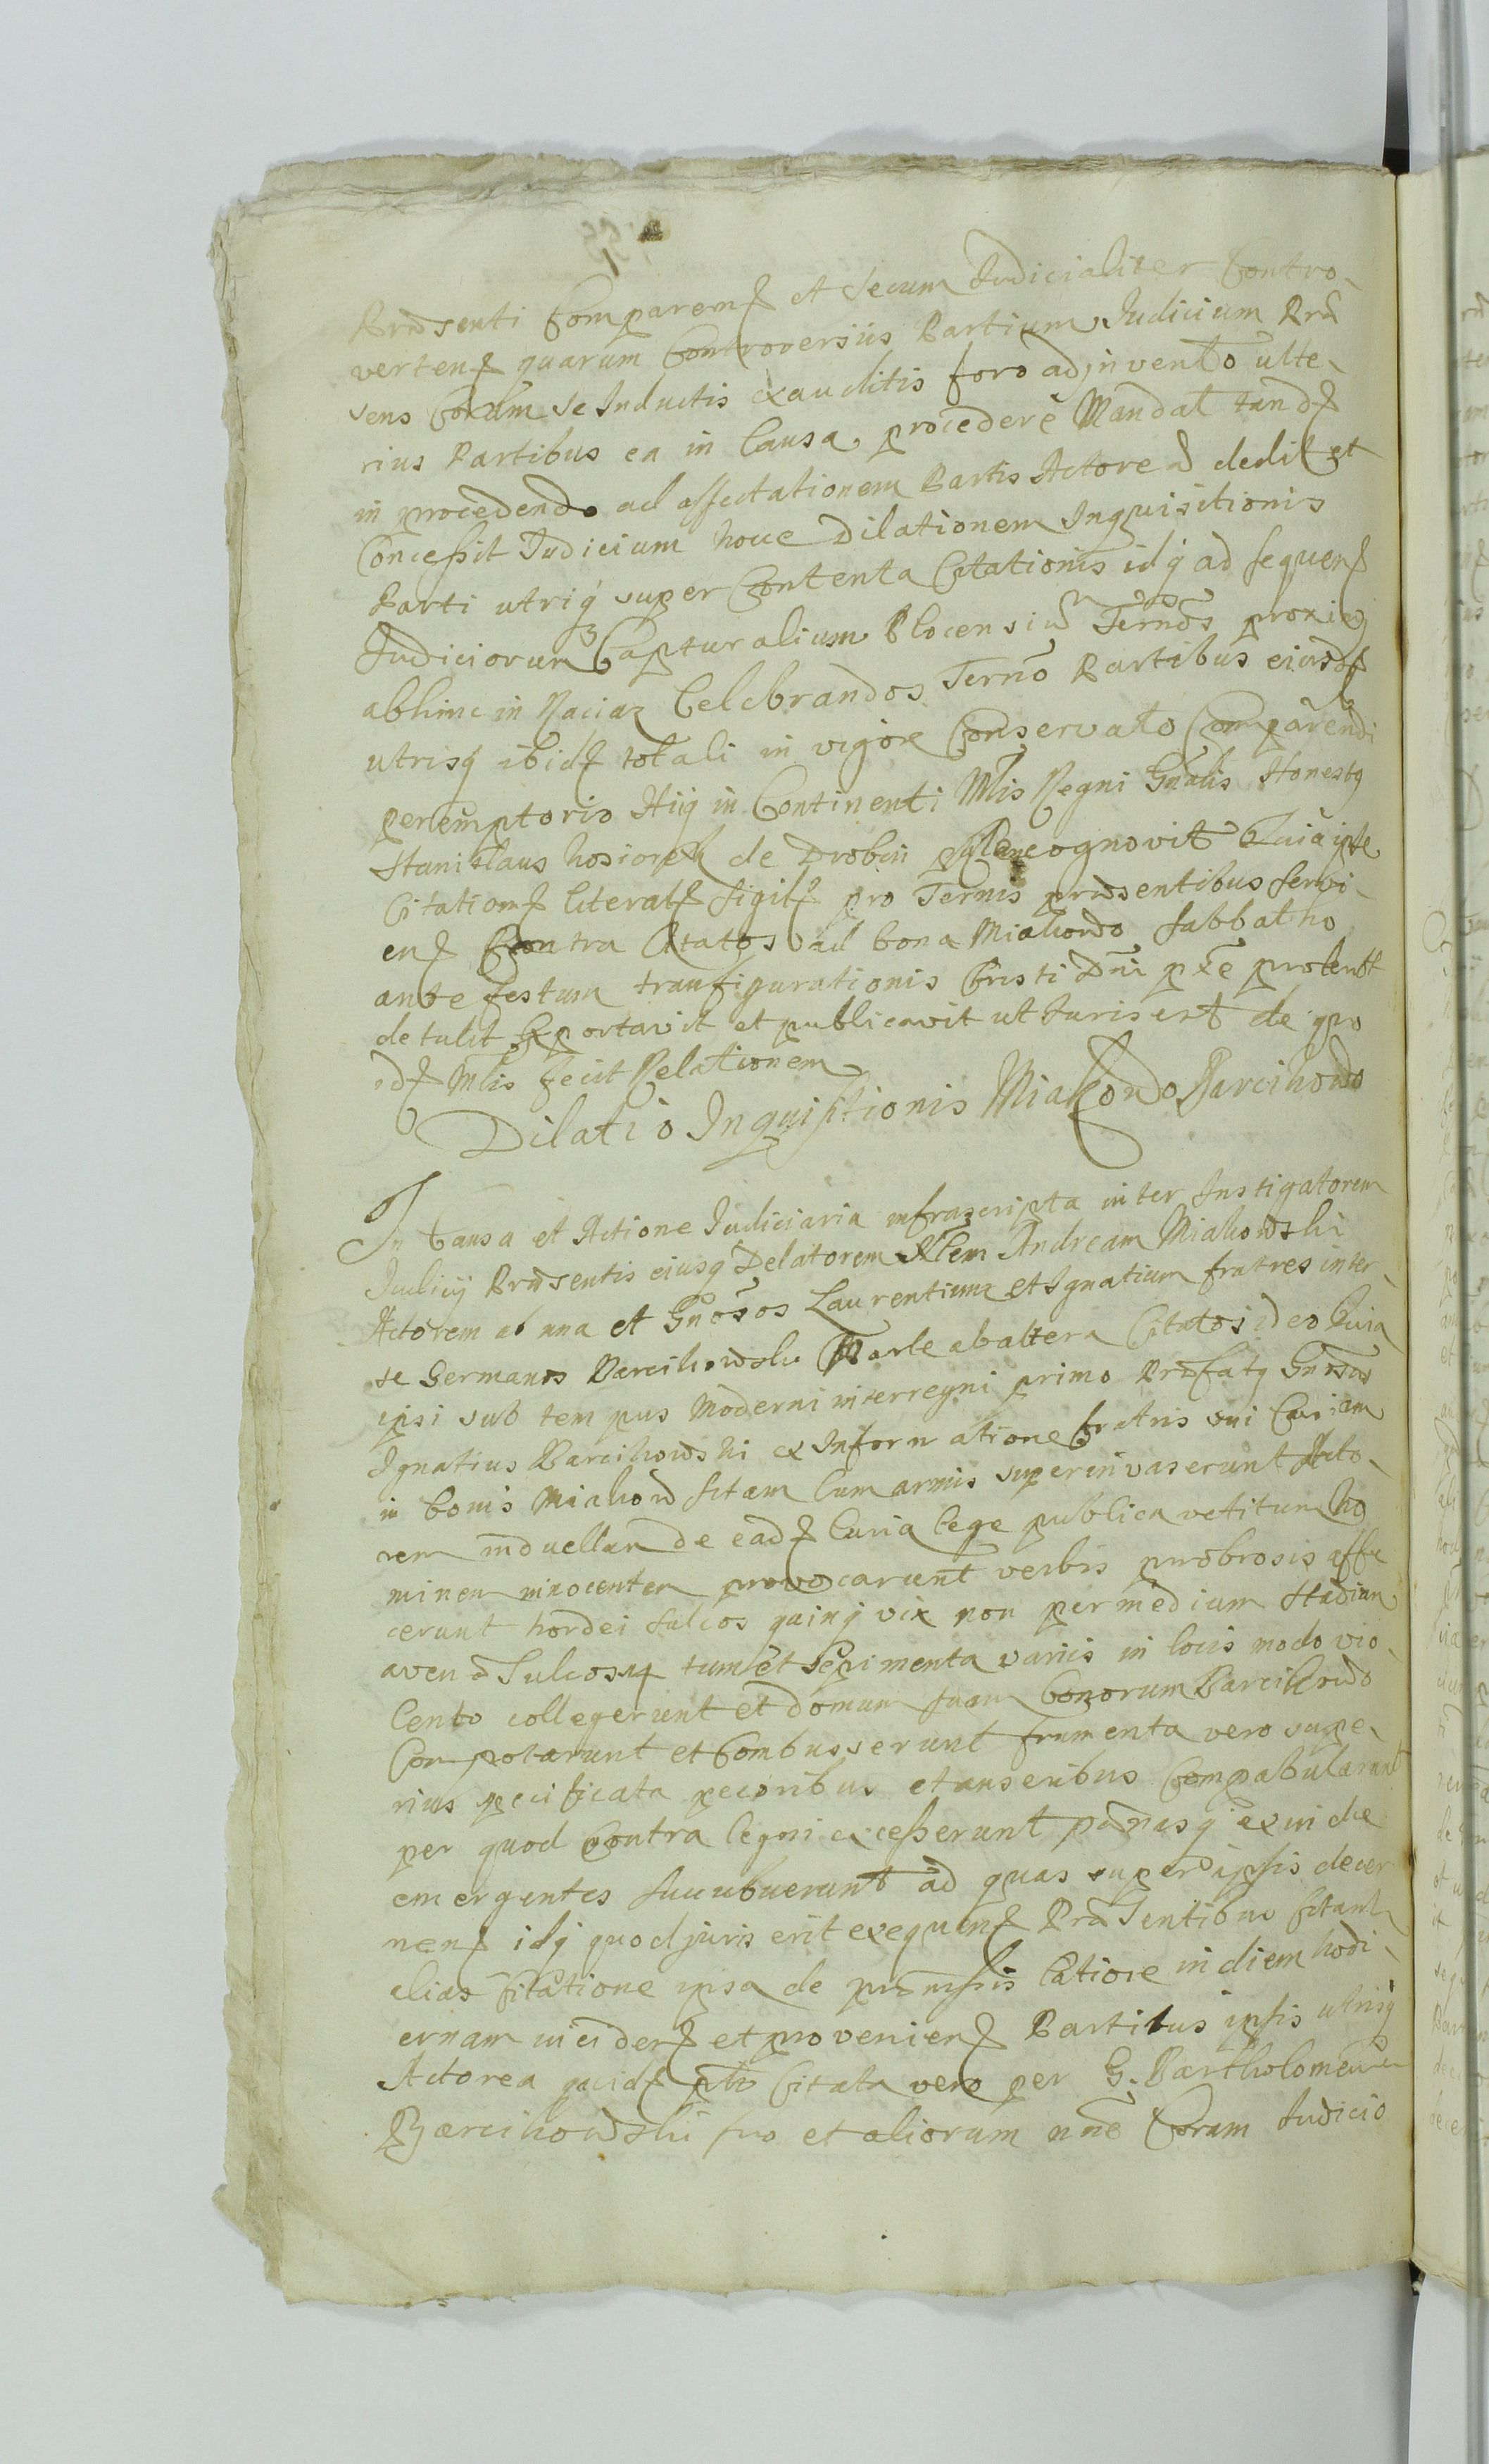 Præsenti Comparenȩ et secum Judicialiter Contro-
vertenȩ quarum Controversiis Partium Judicium Præ
sens Coram se Inductis exauditis foro adjnvento ulte-
rius Partibus ea in Causa procedere Mandat tandȩ
in procedendo ad affectationem Partis Actoreæ dedit et
Concessit Judicium hocce Dilationem Inquisitionis
Parti utriq super Contenta Citationis idq ad sequenȩ
Judiciorum Capturalium Plocensiu Ternos proxieq
abhinc in Raciaz Celebrandos Terno Partibus eiusdȩ
utrisq ibidȩ totali in vigore Conservato Comparendi
peremptorio Hijq in Continenti Mlis Regni Gnalis Honestq
Stanislaus hosiorek de Drobin recognovit Quia ipse
Citationȩ literalȩ sigilȩ pro Ternis præsentibus servi-
enȩ Contra Citatos ad bona Miakowo Sabbatho
ante festum transfigurationis Cristi Dni pxe
detulit Exportavit et publicavit ut Juris est de quo
idȩ Mlis fecit Relationem
Dilatio Inquisitionis Miakowo Barcikowo
In Causa et Actione Judiciaria infrascripta inter Instigatorem
Judicij Præsentis eiusq Delatorem Andream Miakowski
Actorem ab una et Gnosos Laurentium et Ignatium fratres inter-
se Germanos Barcikowski Parte ab altera Citatos ideo Quia
ipsi sub tempus Moderni interregni primo Præfatq Gnosus
Ignatius Barcikowski ex Informatione fratris sui Curiam
in bonis Miakow sitam Cum armis superinvaserunt Acto-
rem in duellum de eadȩ Curia lege publica vetitum ho
minem innocentem provocarunt verbis probrosis affe
cerunt hordei sulcos quinq vix non per medium Stadium
avenæ Sulcos 4 tum et sepimenta variis in locis modo vio-
lento collegerunt et domum suam bonorum Barcikowo
Comportarunt et Combusserunt frumenta vero supe-
rius specificata pecoribus et anseribus Compabularunt
per quod Contra legni excesserunt pænasq exinde
emergentes succubuerunt ad quas super ipsis decer
nenȩ idq quod juris erit exequenȩ Præsentibus Citant
alias Citatione ipsa de præmissis latiore in diem hodi-
ernam incidenȩ et provenienȩ Partibus ipsis utrisq
Actorea quidȩ plr Citata vero per G. Bartholomeum
Barcikowski suo et aliorum nne Coram Judicio